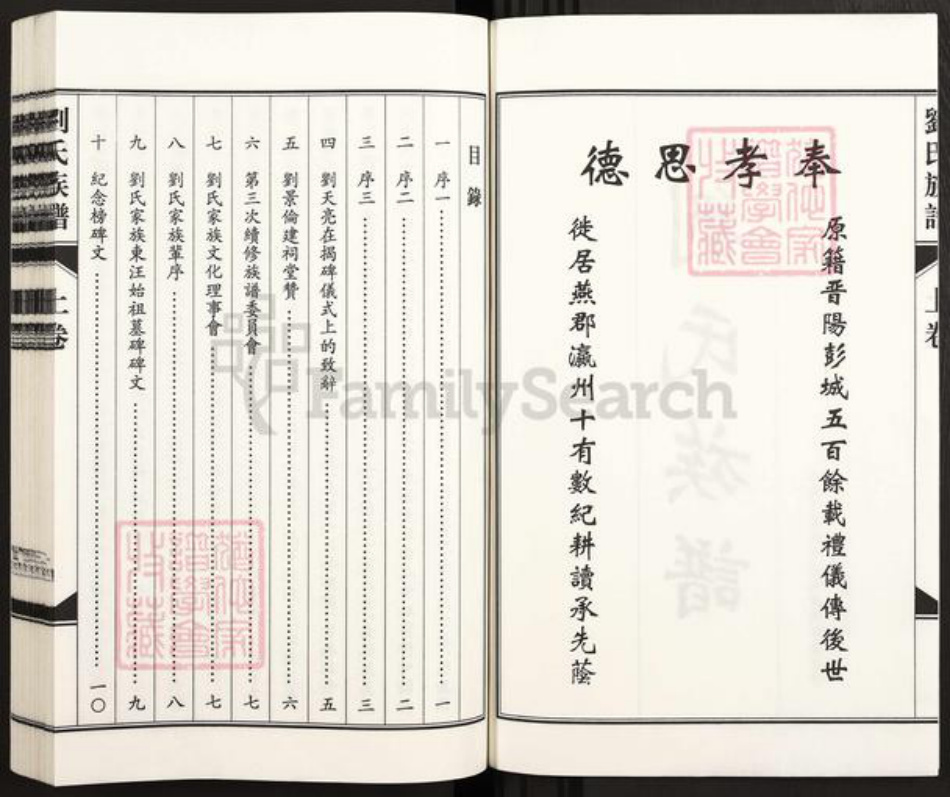 奉孝思德
原籍晋陽彭城五百餘載禮儀傳後世
徙居燕郡瀛州十有數紀耕讀承先蔭
劉氏族譜
上卷
目錄
一 序一 一
二 序二 二
三 序三 三
四 劉天亮在揭碑儀式上的致辭 五
五 劉景倫建祠堂贊 六
六 第三次續修族譜委員會 七
七 劉氏家族文化理事會 七
八 劉氏家族輩序 八
九 劉氏家族東汪始祖墓碑碑文 九
十 紀念榜碑文 一〇
劉氏族譜
上卷
FamilySearch